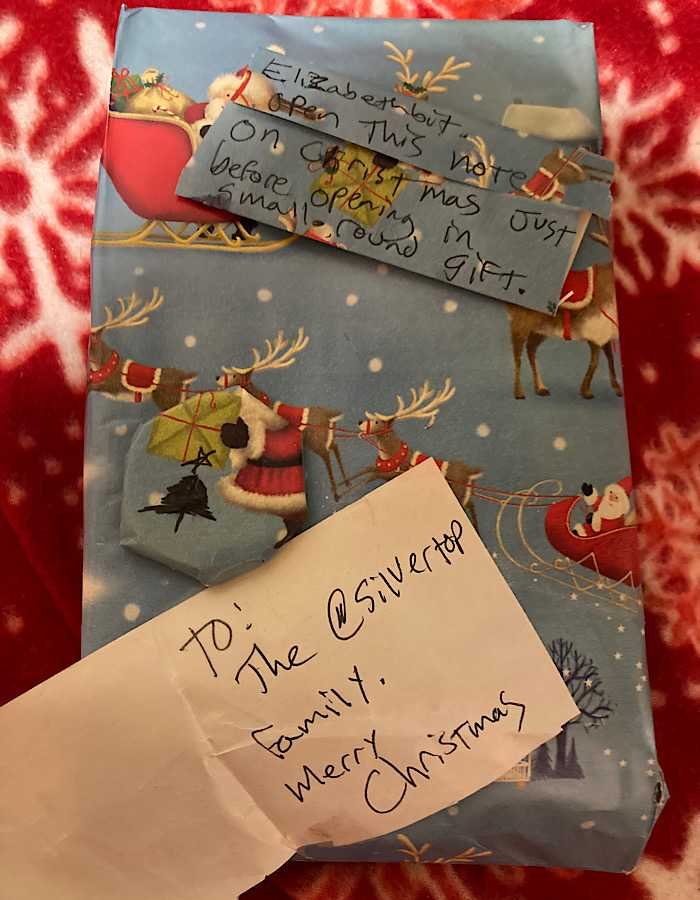 Elizabethbit.
open This note
On Christmas Just
before opening in
Small round gift.
To:
The @Silvertop
Family.
Merry
Christmas